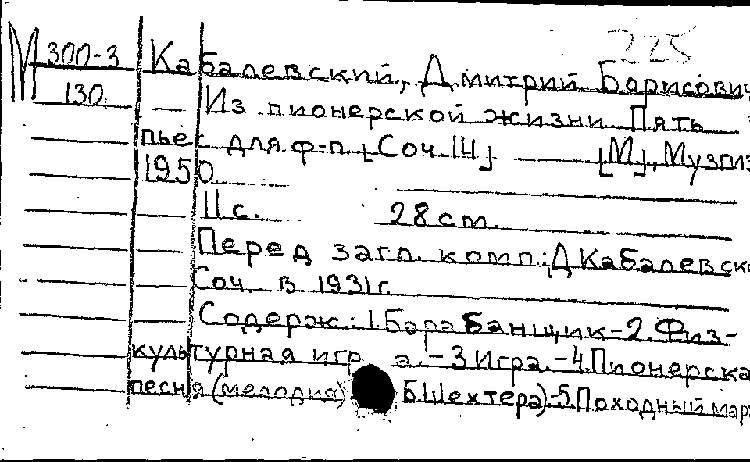 225
М 300-3 Кабалевский, Дмитрий Борисович
130 Из пионерской жизни Пять
пьес для ф-п. [Соч 14] [М], Музгиз
1950
11 с. 28 cm.
Перед загл. комп.: Д Кабалевск
Соч. в 1931 г.
Содерж: 1. Барабанщик-2. Физ-
культурная игр а.-3 Игра.-4. Пионерска
песня (мелодия Б. Шехтера)-5. Походный мар